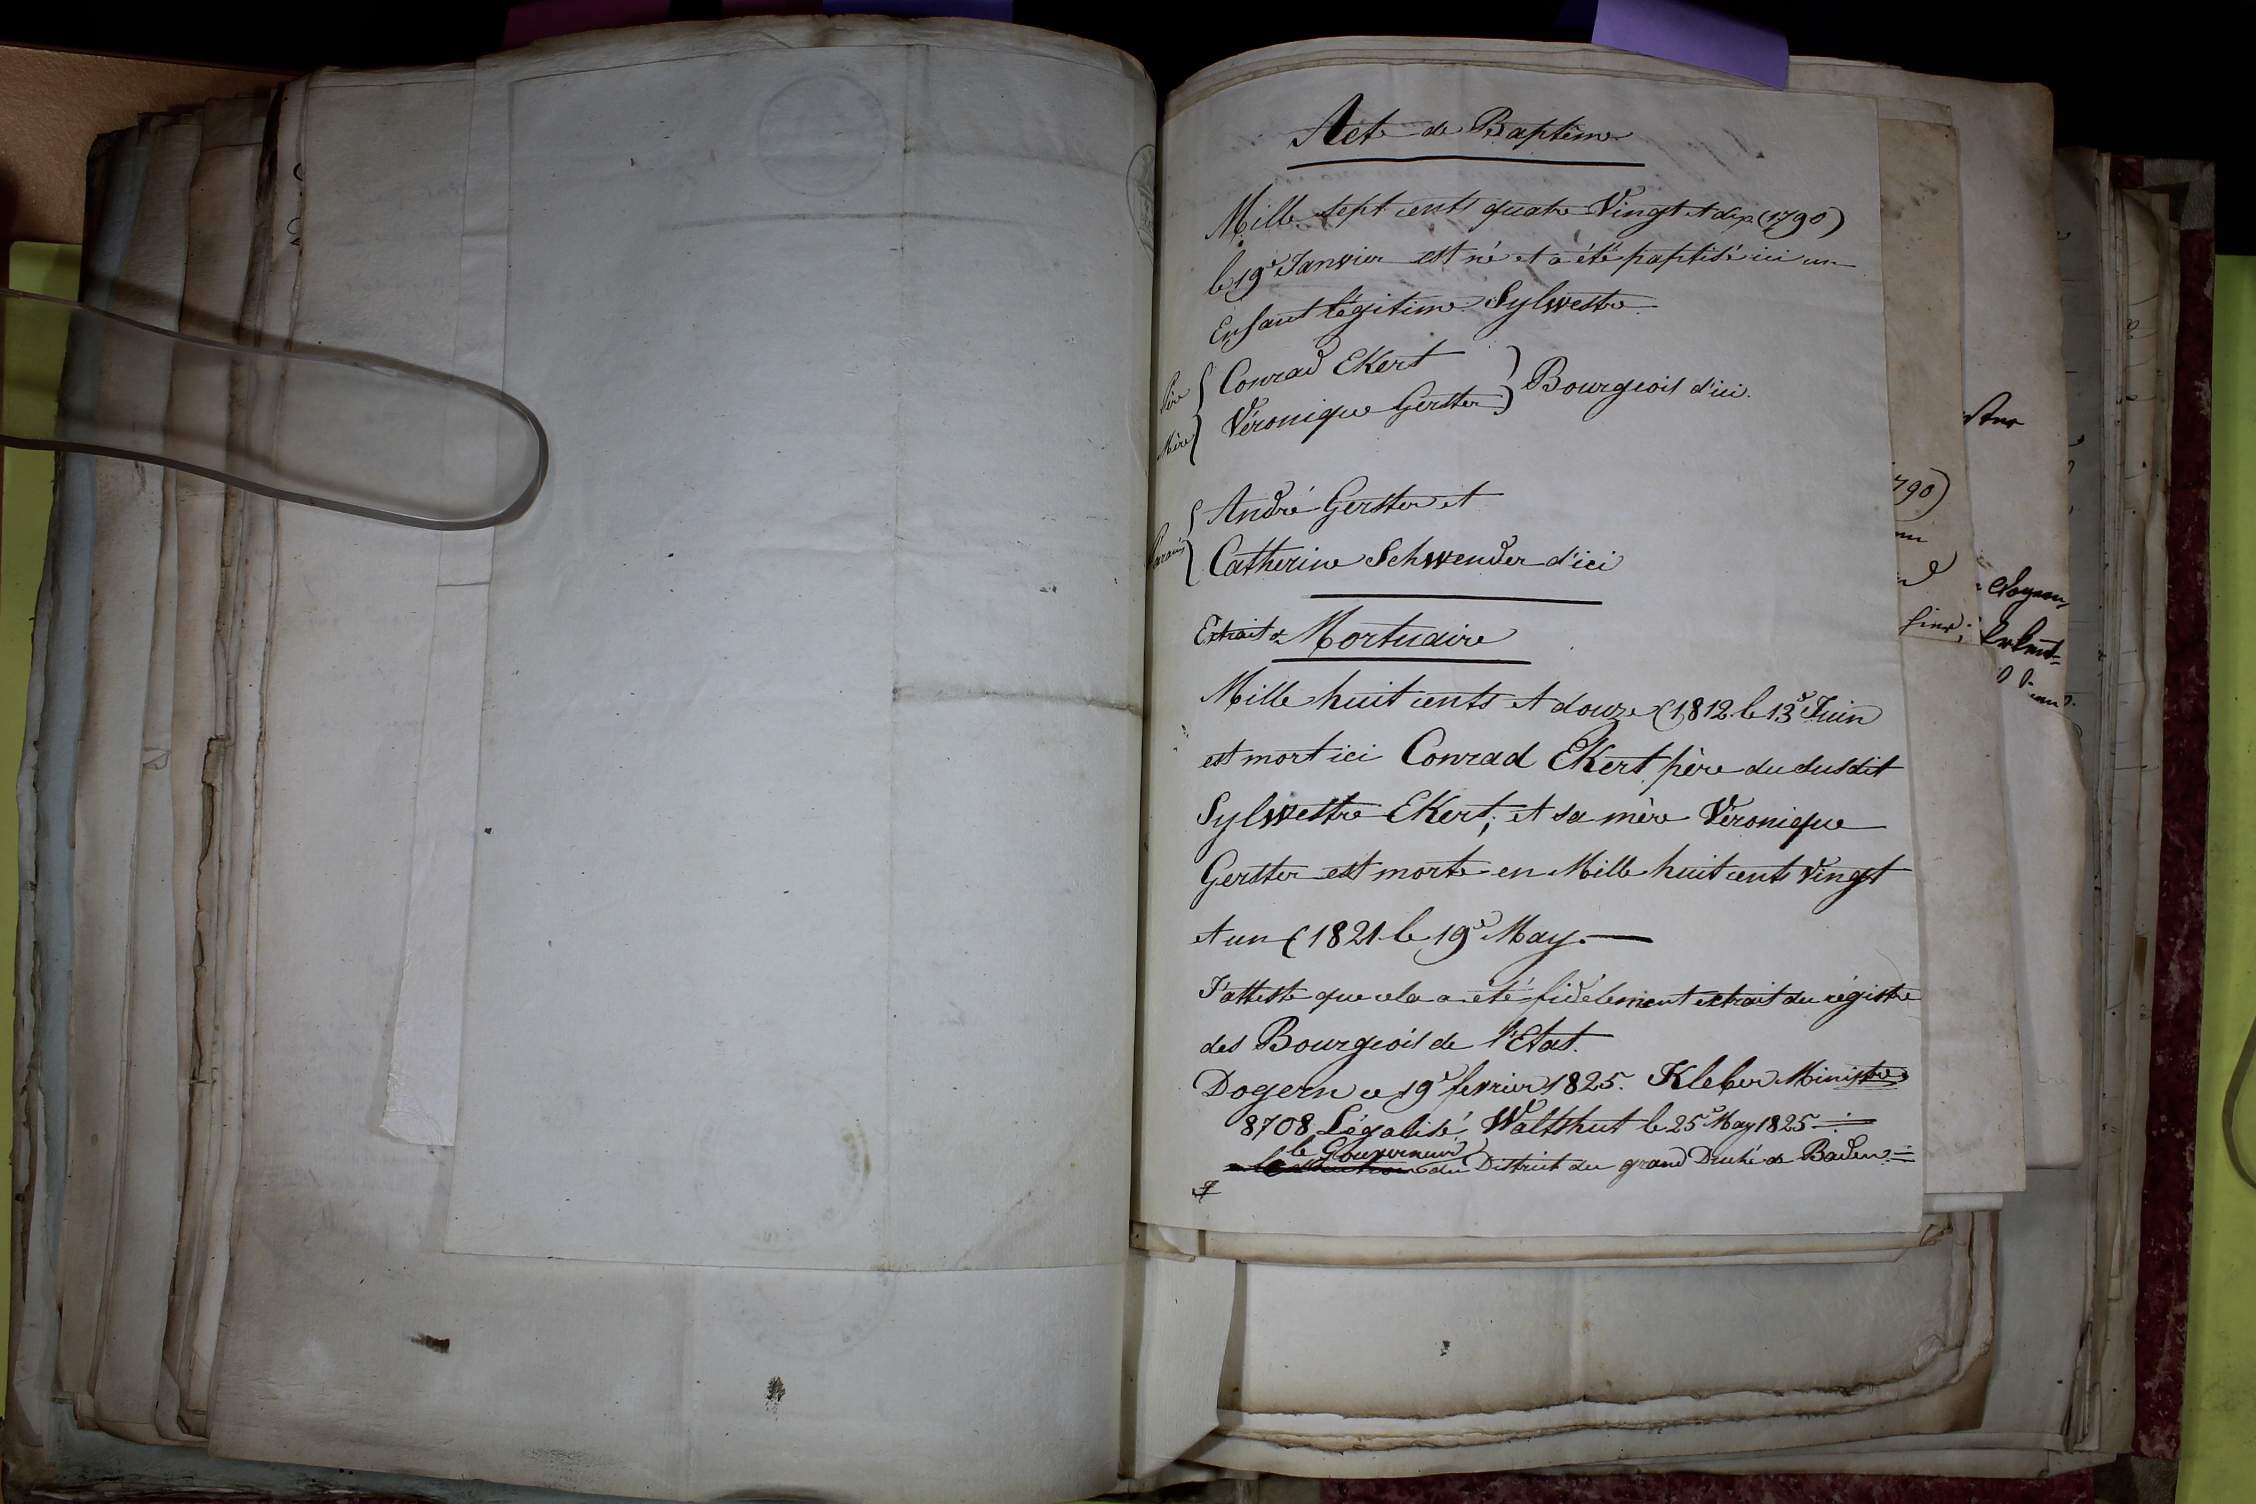 Acte de Baptême
Mille sept cents quatre Vingt et dix (1790)
le 19e Janvier est né et a été paptisé ici un
Enfant légitime Sylwestre
Père Conrad Ekert
Mère Véronique Gerster Bourgeois d'ici.
André Gerster et
Parains Catherine Schwender d'ici
Extrait de Mortuaire
Mille huit cents et douze (1812. le 13e Juin
est mort ici Conrad Ekert père du susdit
Sylwestre Ekert; et sa mère Véronique
Gerster est morte en Mille huit cents Vingt
et un (1821 le 19e May.
J'atteste que cela a été fidélement extrait du régistre
des Bourgeois de l'Etat.
Dogern ce 19e fevrier 1825. Kleber Ministre
8708 Légalisé, Waltshut le 25e May 1825
le Gouverneur
du District du grand Duché de Baden
790)